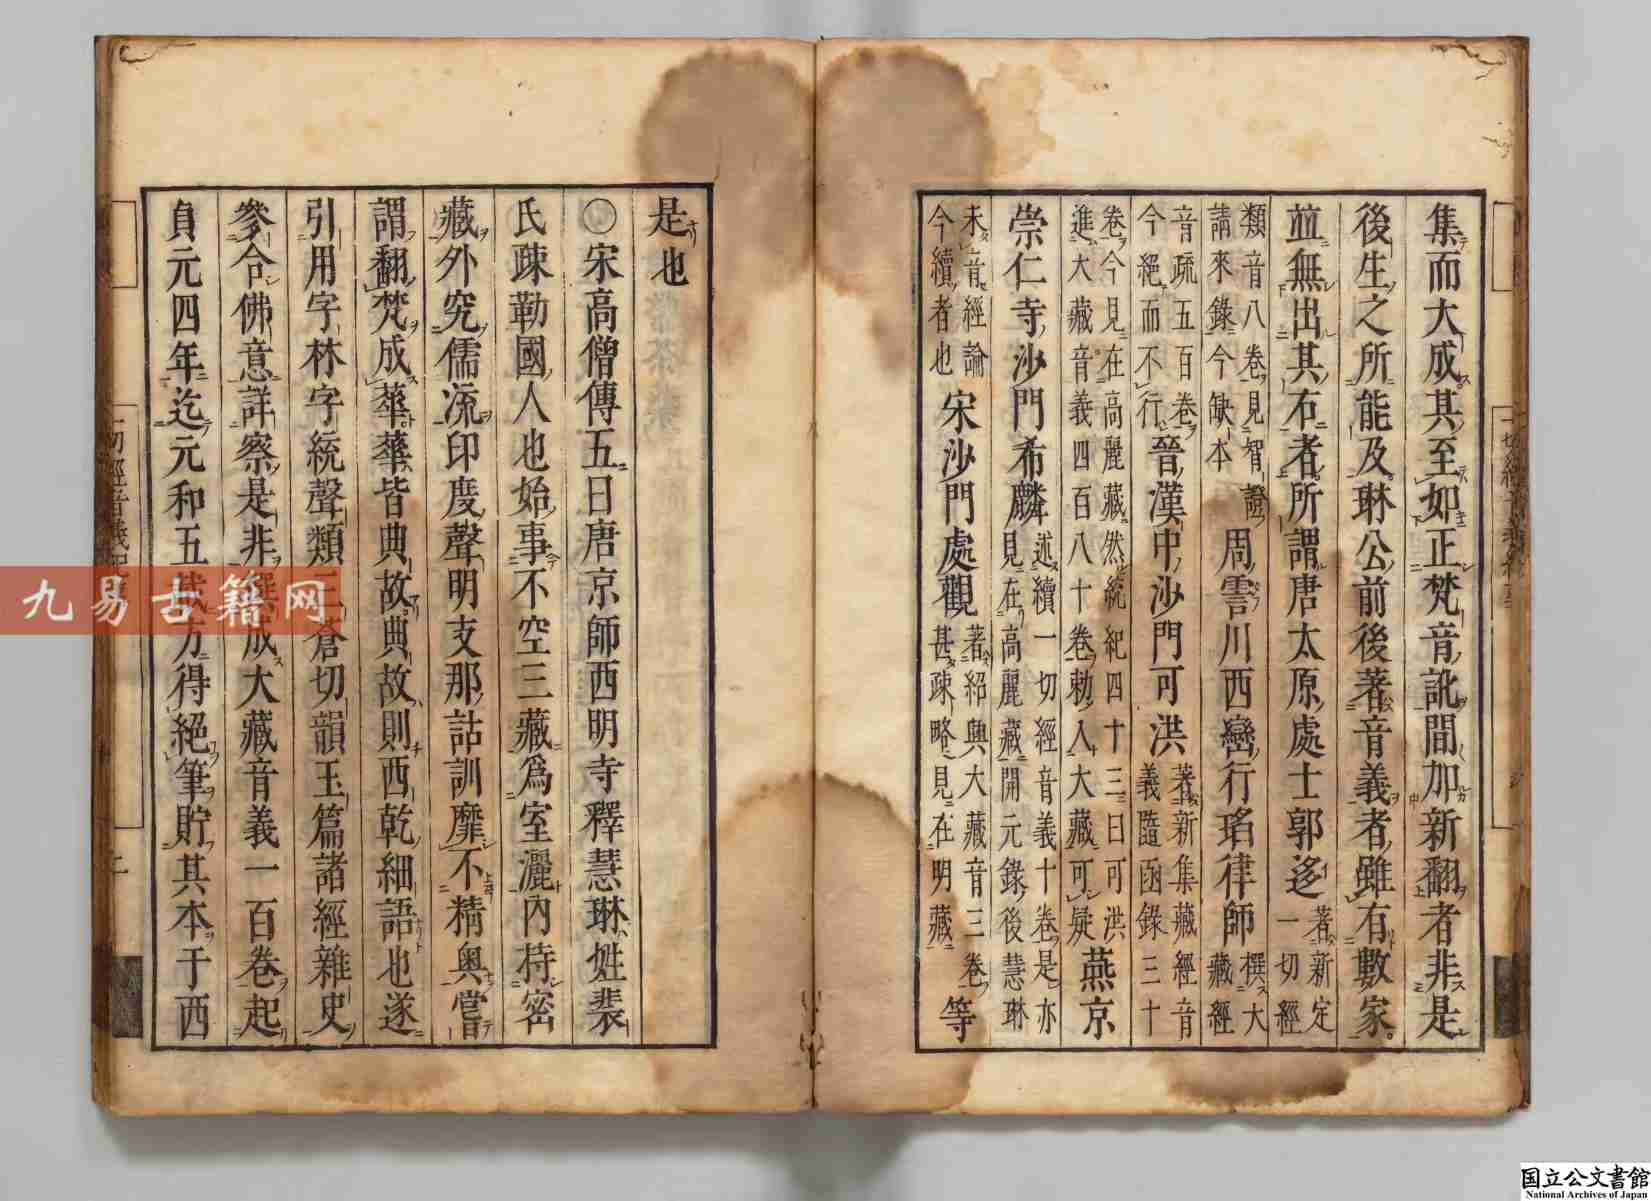 集而大成其至如正梵音訛間加新翻者非是
後生之所能及琳公前後著音義者雖有數家
並無出其右者所謂唐太原處士郭迻著新定一切經
類音八卷見智證請來錄今缺本周雲川西巒行瑫律師撰大藏經
音疏五百卷今絕而不行晉漢中沙門可洪著新集藏經音義隨函錄三十
卷今見在高麗藏然統紀四十三曰可洪進大藏音義四百八十卷勅入大藏可疑燕京
崇仁寺沙門希麟述續一切經音義十卷是亦見在高麗藏開元錄後慧琳
未音經論今續者也宋沙門處觀著紹興大藏音三卷甚疎略見在明藏等
是也
○宋高僧傳五曰唐京師西明寺釋慧琳姓裴
氏疎勒國人也始事不空三藏爲室灑內持密
藏外究儒流印度聲明支那詁訓靡不精奧嘗
謂翻梵成華華皆典故典故則西乾細語也遂
引用字林字統聲類三蒼切韻玉篇諸經雜史
參合佛意詳察是非撰成大藏音義一百卷起
貞元四年迄元和五載方得絕筆貯其本于西
一切經音義紀事
二
九易古籍网
国立公文書館
National Archives of Japan